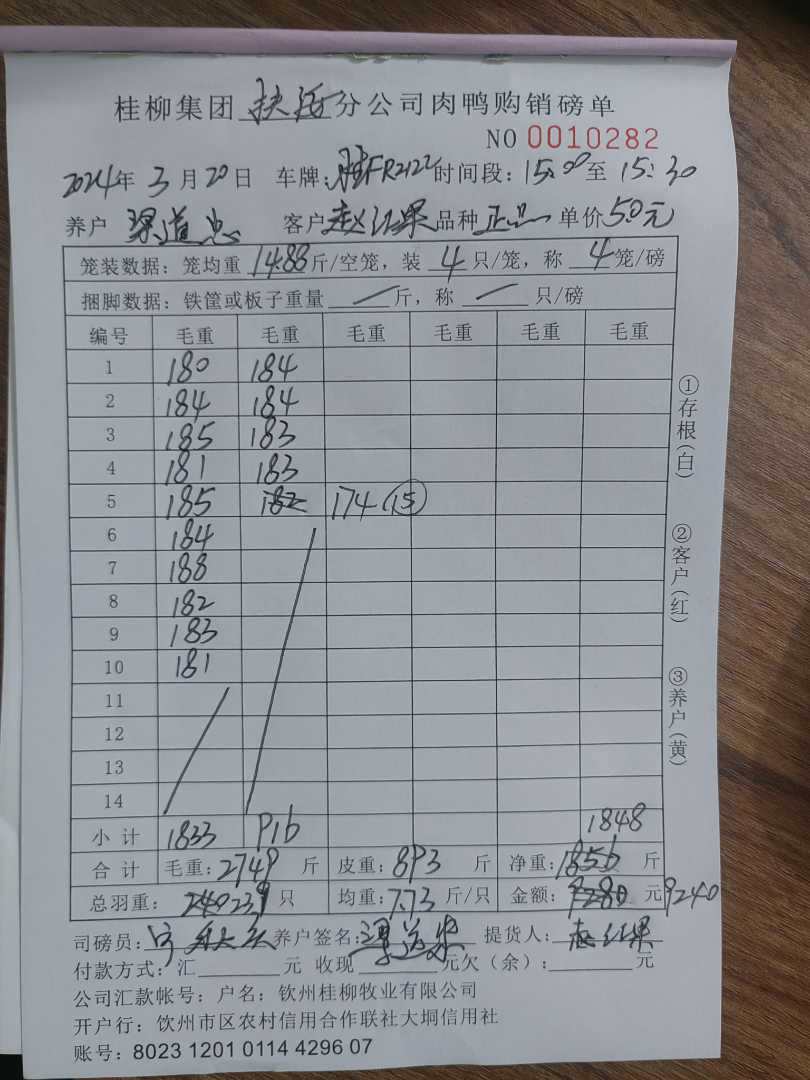 桂柳集团 分公司肉鸭购销磅单
NO 0010282
2024年 3月 20日 车牌:桂FR2122 时间段:15:00至 15:30
养户 客户 赵红果 品种 正品 单价 5.0元
笼装数据:笼均重 14.88 斤/空笼,装 4 只/笼,称 4 笼/磅
捆脚数据:铁筐或板子重量 / 斤,称 / 只/磅
编号 毛重 毛重 毛重 毛重 毛重 毛重
1 180 184
2 184 184
3 185 183
4 181 183
5 185 182 174 (15)
6 184
7 188
8 182
9 183
10 181
11
12
13
14
小计 1833 916 1848
合计 毛重:2749 斤 皮重:893 斤 净重:1856 斤
总羽重: 240 239 只 均重:7.73 斤/只 金额:9280 元 9240
司磅员: 养户签名: 提货人: 赵红果
付款方式:汇 元 收现 元欠(余): 元
公司汇款帐号:户名:钦州桂柳牧业有限公司
开户行:钦州市区农村信用合作联社大垌信用社
账号:8023 1201 0114 4296 07
①存根(白)
②客户(红)
③养户(黄)